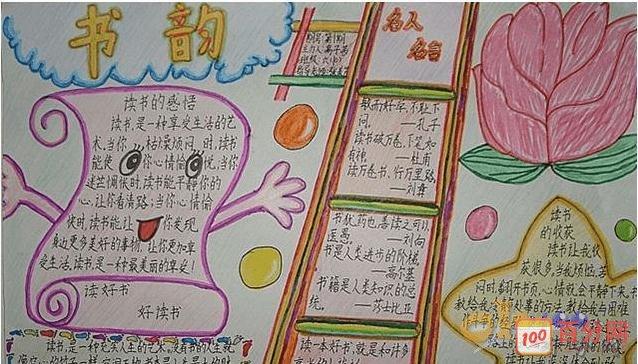 书韵
读书的感悟
读书,是一种享受生活的艺
术,当你枯燥烦闷时,读书
能使你心情愉悦;当你
迷茫惆怅时,读书能平静你的
心,让你看清路;当你心情愉
快时,读书能让你发现
身边更多美好的事物,让你更加享
受生活。读书是一种最美丽的享受!
读好书
好读书
读书,是一种充实人生的艺术,没有书的人生就
名人
名言
敏而好学,不耻下
问。——孔子
读书破万卷,下笔如
有神。——杜甫
读万卷书,行万里路
——刘彝
书犹药也,善读之可以
医愚。——刘向
书是人类进步的阶梯
——高尔基
书籍是人类知识的总
统。——莎士比亚
读一本好书,就是和许多
读书
的收获
读书让我收
获很多,当我烦恼、苦
闷时,翻开书页,心情就会平静下来,书
教给我
100
百分网